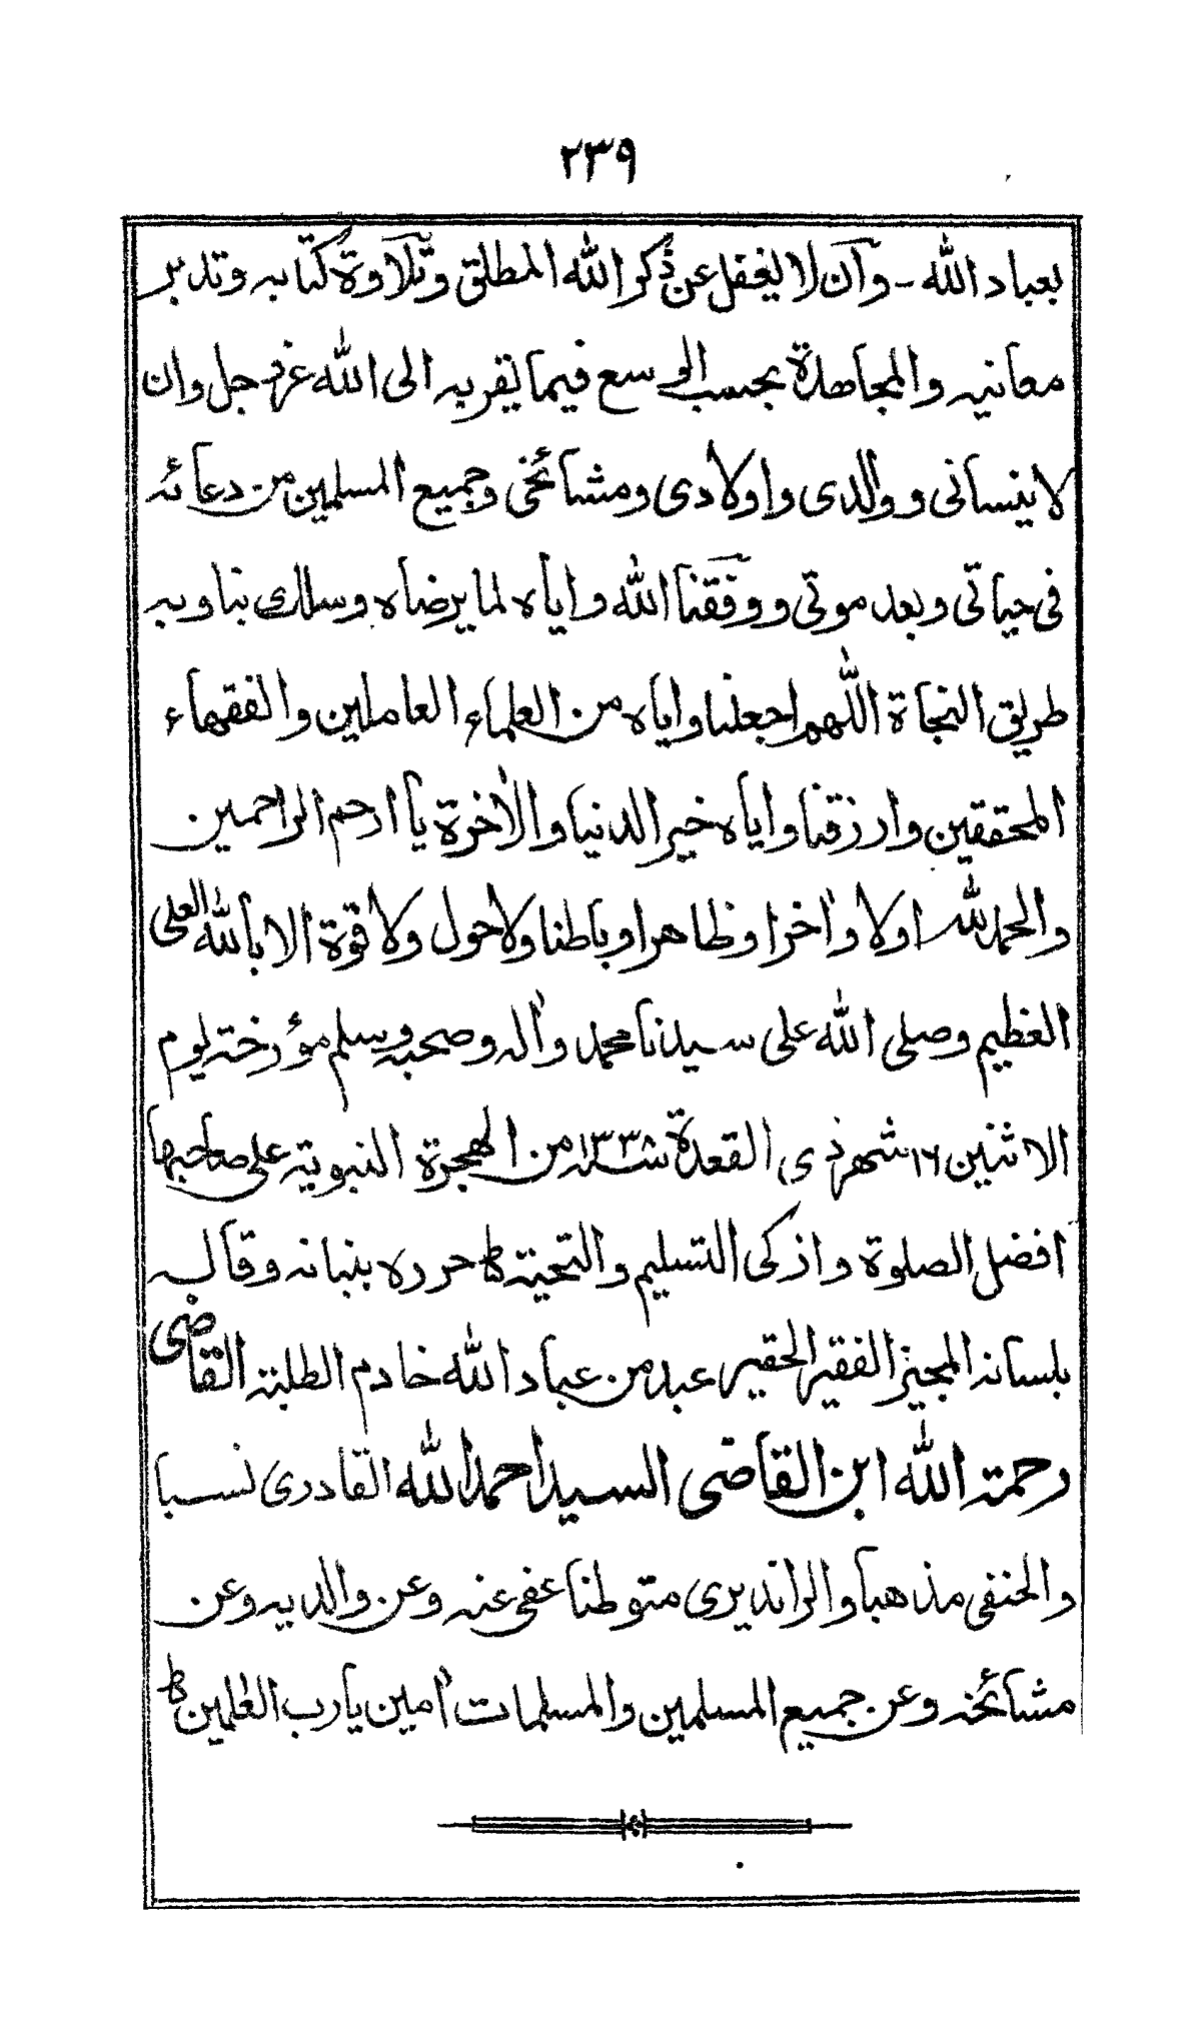 ٢٣٩
بعباد الله - وآن لا يغفل عن ذكر الله المطلق وتلاوة كتابه وتدبر
معانيه والمجاهدة بحسب الوسع فيما يقربه الى الله عز وجل وان
لا ينسانى ووالدى واولادى ومشائخى وجميع المسلمين من دعائه
فى حياتى وبعد موتى ووفقنا الله واياه لما يرضاه وسلك بنا وبه
طريق النجاة اللهم اجعلنا واياه من العلماء العاملين والفقهاء
المحققين وارزقنا واياه خير الدنيا والاٰخرة يا ارحم الراحمين
والحمد لله اولا واٰخرا وظاهرا وباطنا ولا حول ولا قوة الا بالله العلى
العظيم وصلى الله على سيدنا محمد واٰله وصحبه وسلم مؤرخته ليوم
الاثنين ١٦ شهر ذى القعدة سنة ١٣٣٨ من الهجرة النبوية على صاحبها
افضل الصلوة وازكى التسليم والتحية ط حرره ببنانه وقاله
بلسانه المجيز الفقير الحقير عبد من عباد الله خادم الطلبة القاضى
رحمة الله ابن القاضى السيد احمد الله القادرى نسبا
والحنفى مذهبا والراندیری متوطنا عفى عنه وعن والديه وعن
مشائخه وعن جميع المسلمين والمسلمات اٰمين يا رب العٰلمين ط